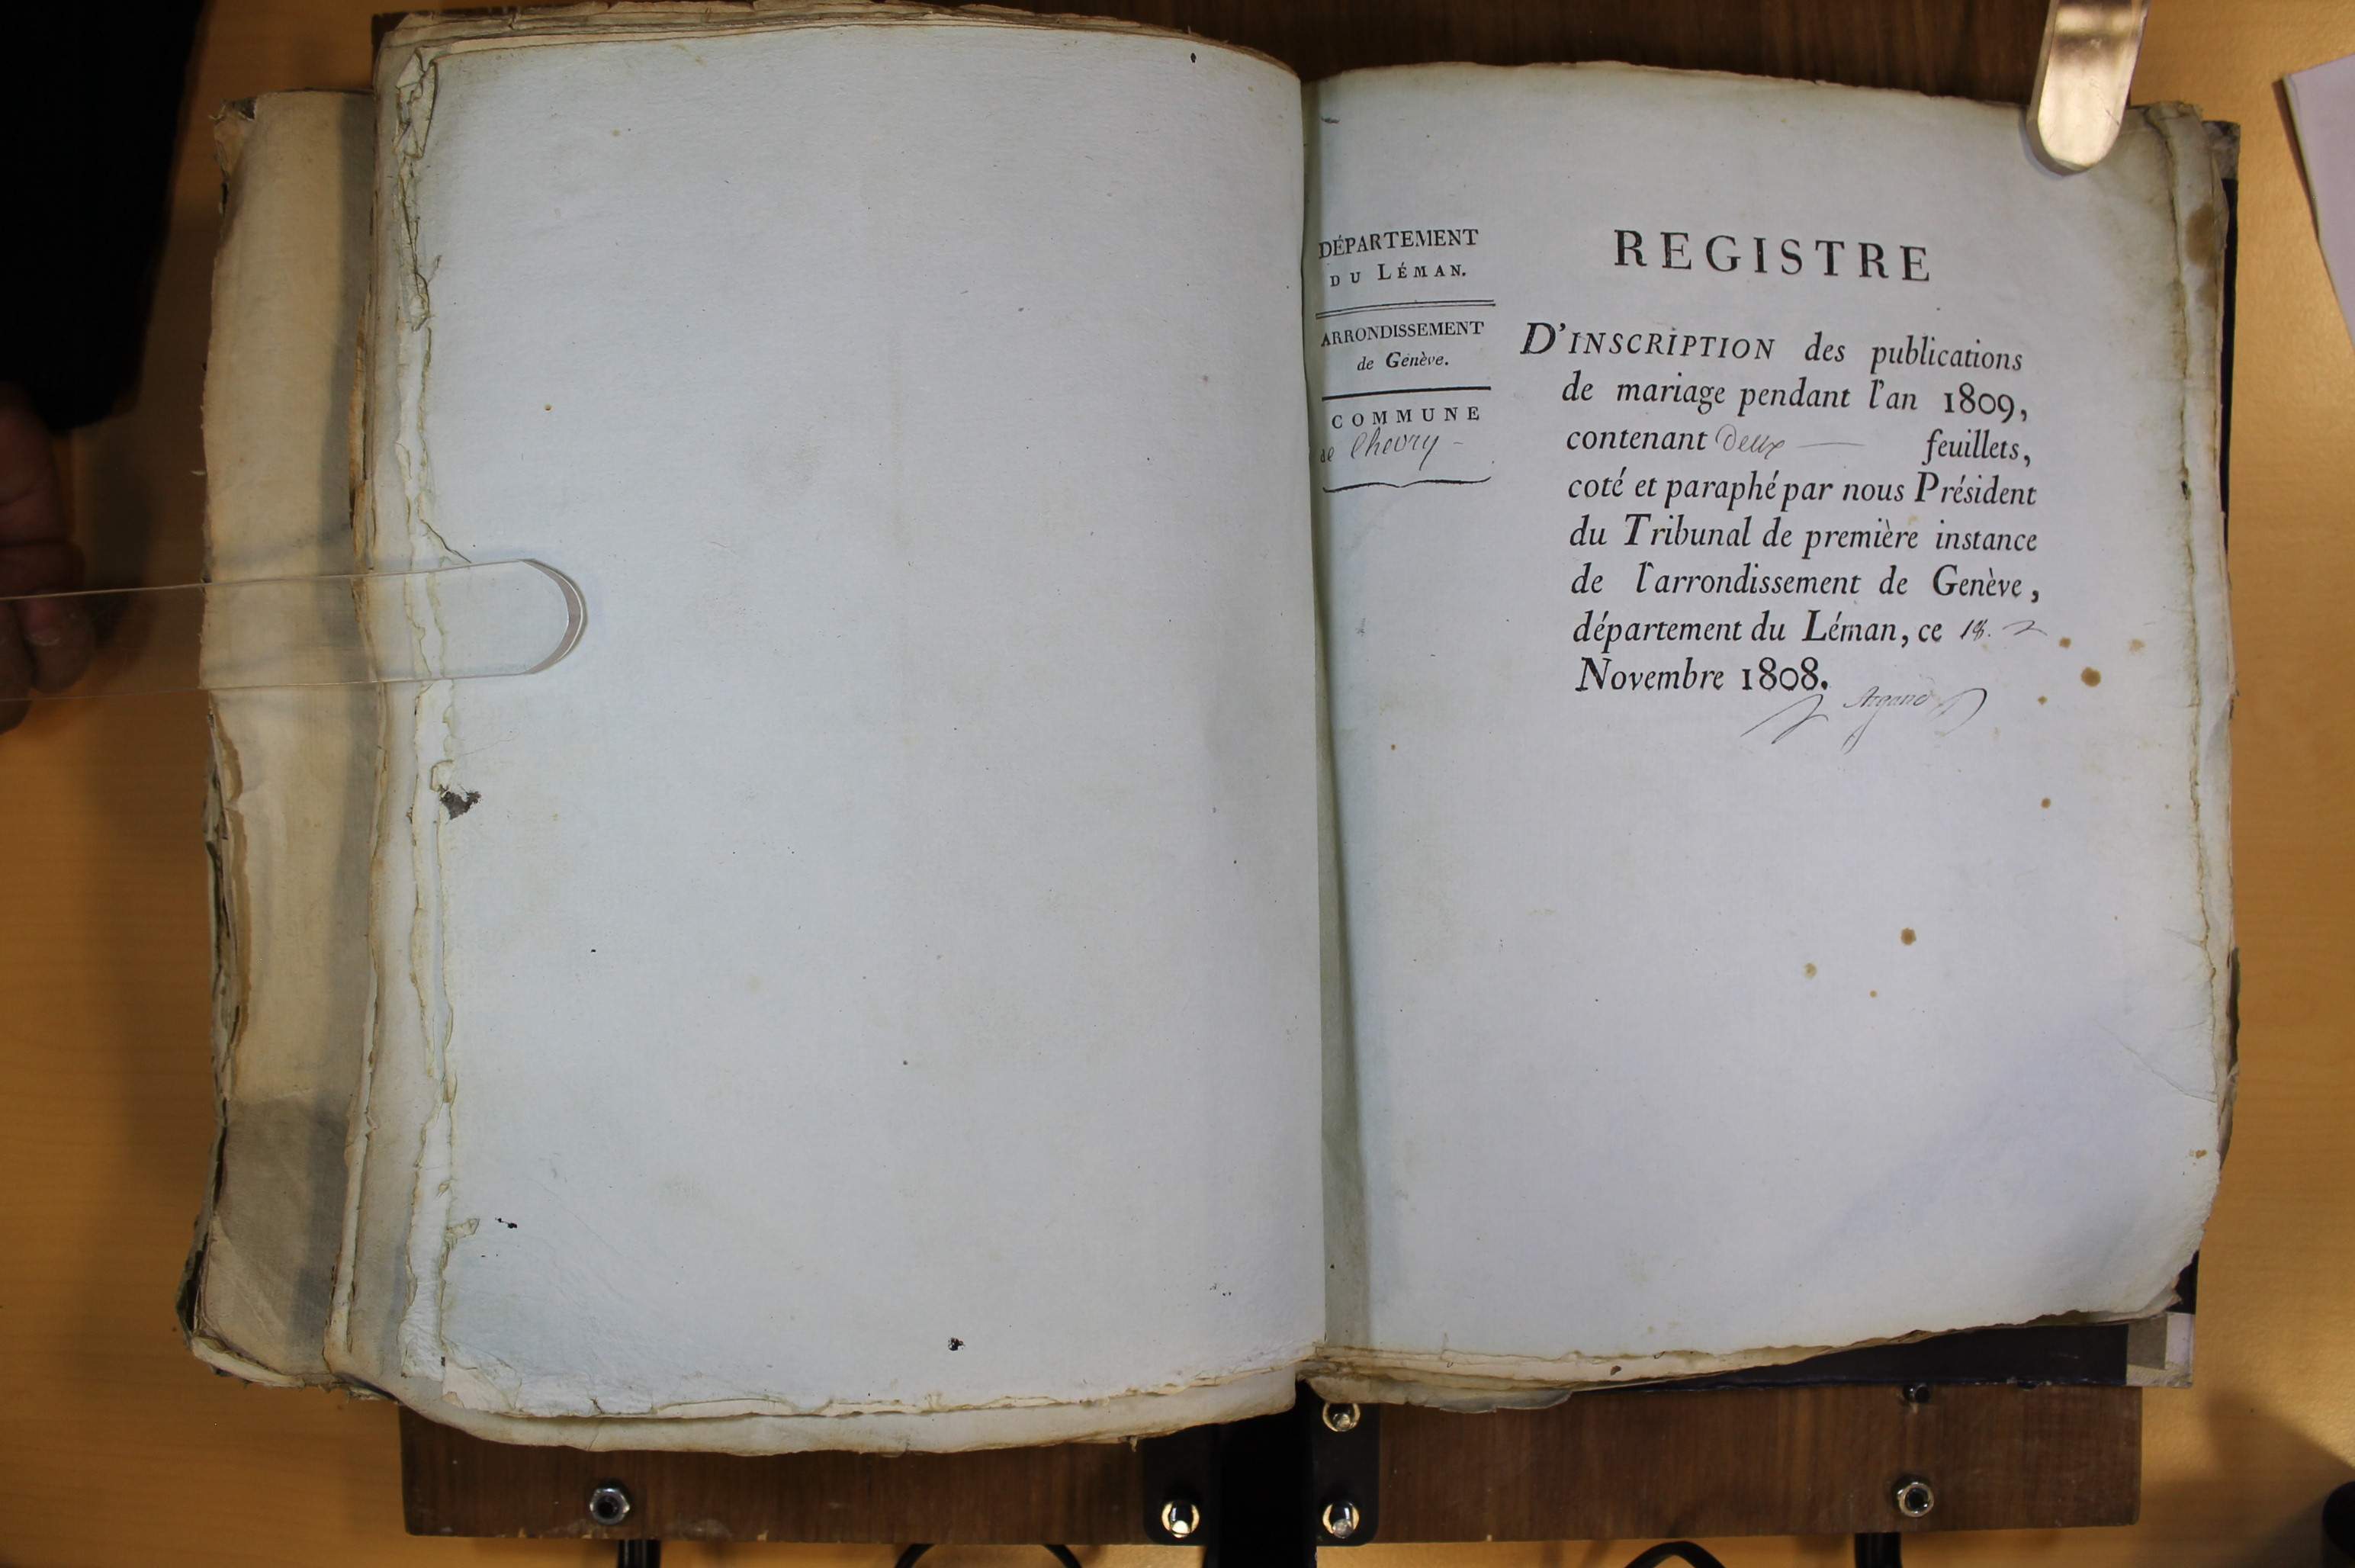 DÉPARTEMENT
DU LÉMAN.
ARRONDISSEMENT
de Genève.
COMMUNE
de Chevry -
REGISTRE
D'INSCRIPTION des publications
de mariage pendant l'an 1809,
contenant deux — feuillets,
coté et paraphé par nous Président
du Tribunal de première instance
de l'arrondissement de Genève,
département du Léman, ce 18.
Novembre 1808.
Argand